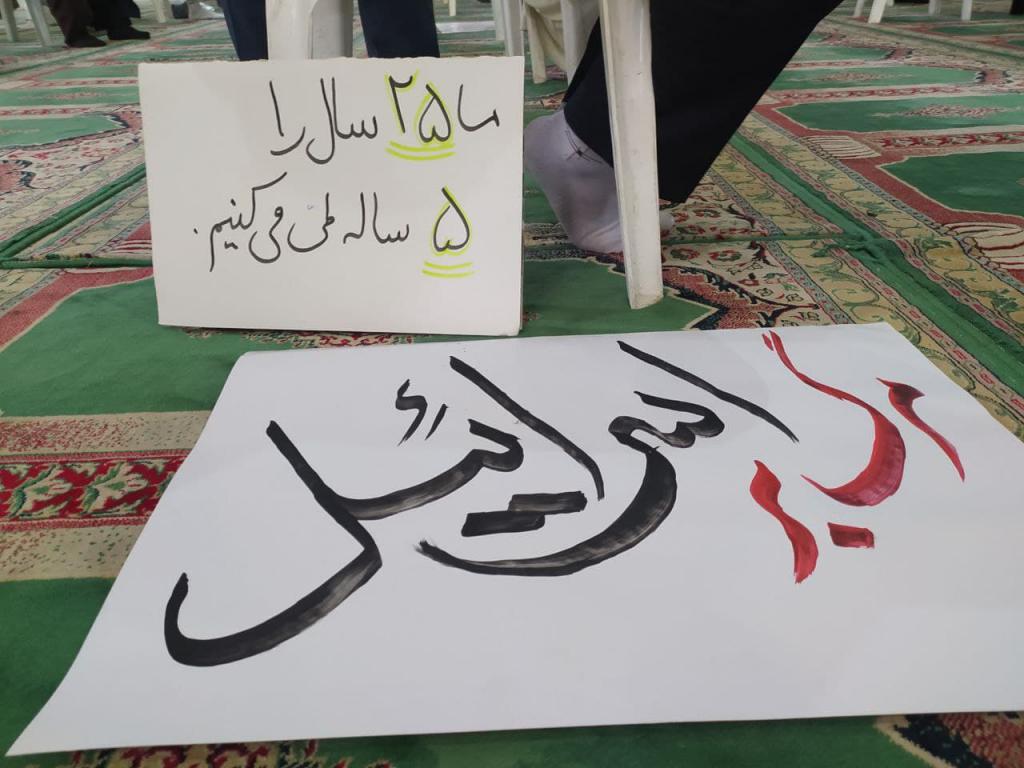 ما ۲۵ سال را
۵ ساله طی می کنیم.
مرگ بر اسرائیل